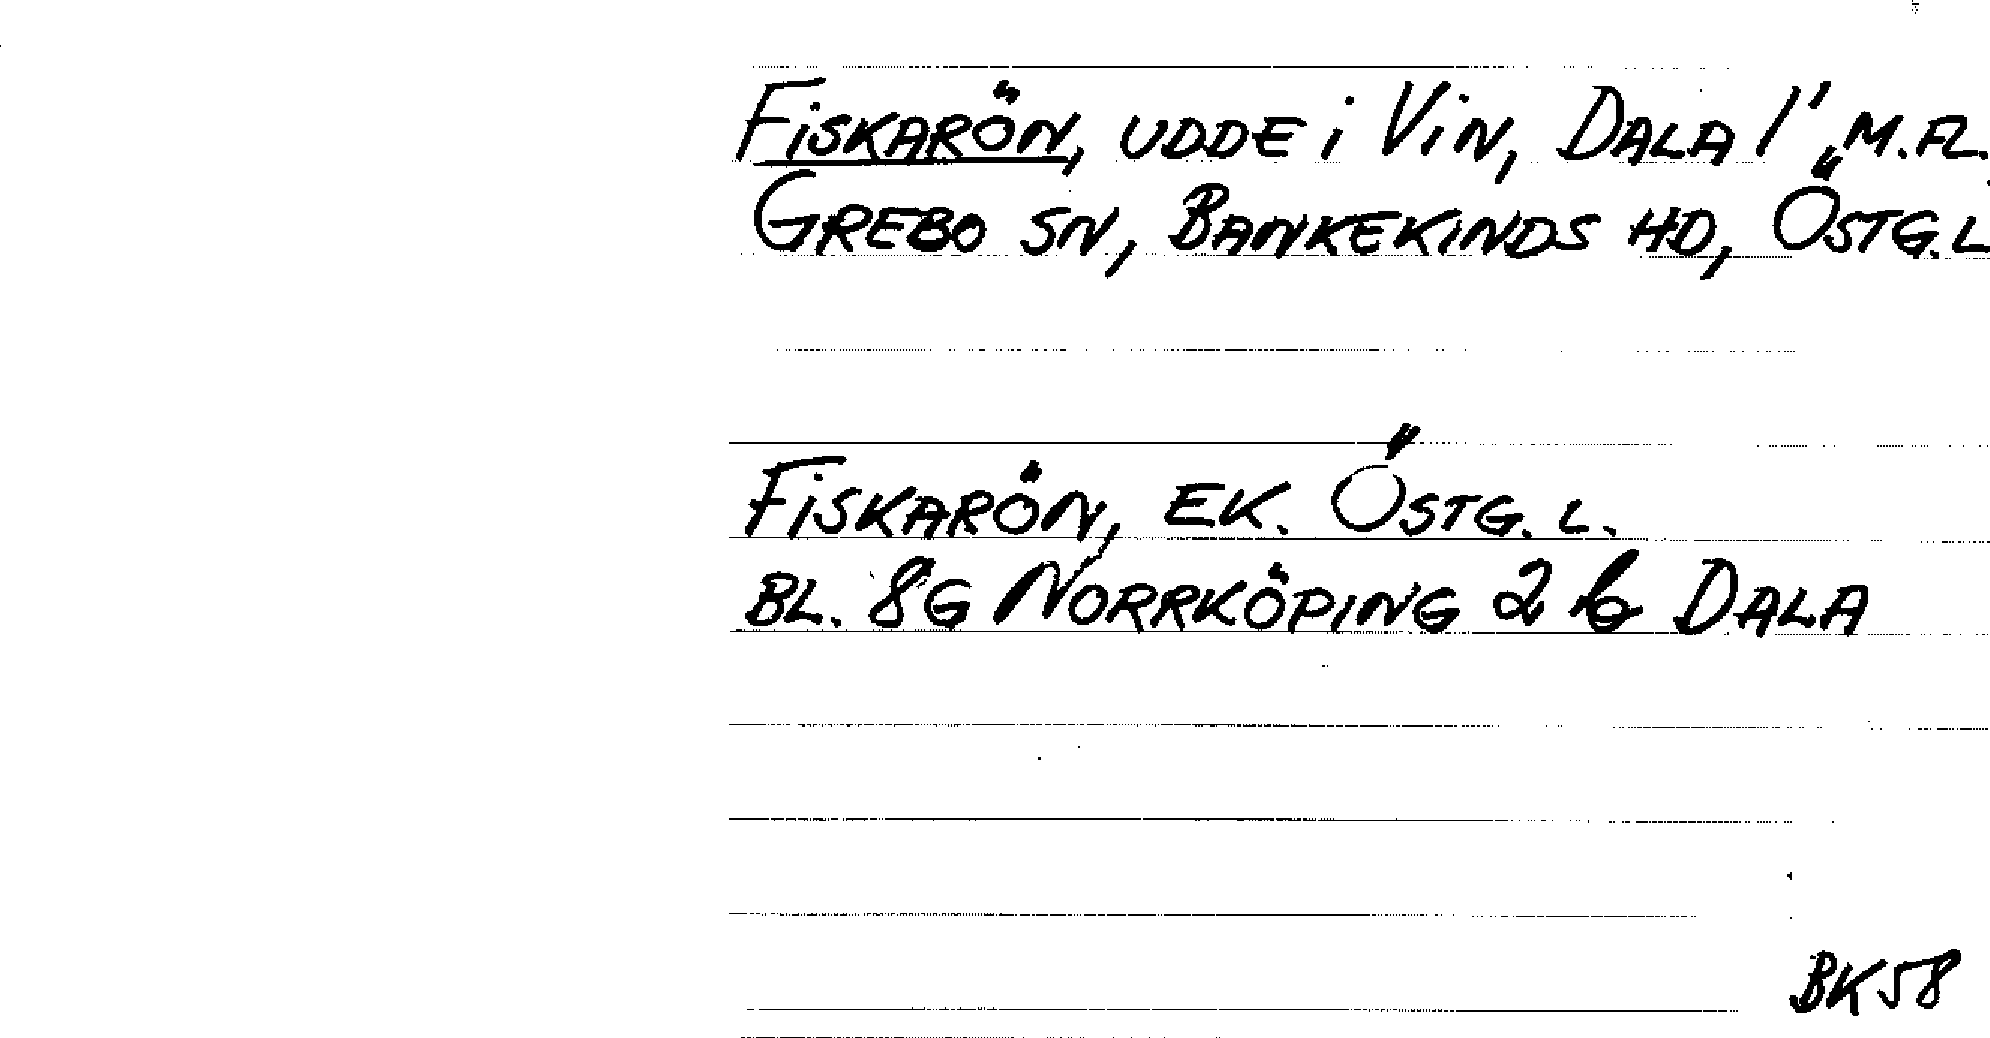 FISKARÖN, UDDE I VIN, DALA 1', M.FL.
GREBO SN, BANKEKINDS HD, ÖSTG.L
FISKARÖN, EK. ÖSTG. L.
BL. 8G NORRKÖPING 2 b DALA
BK58